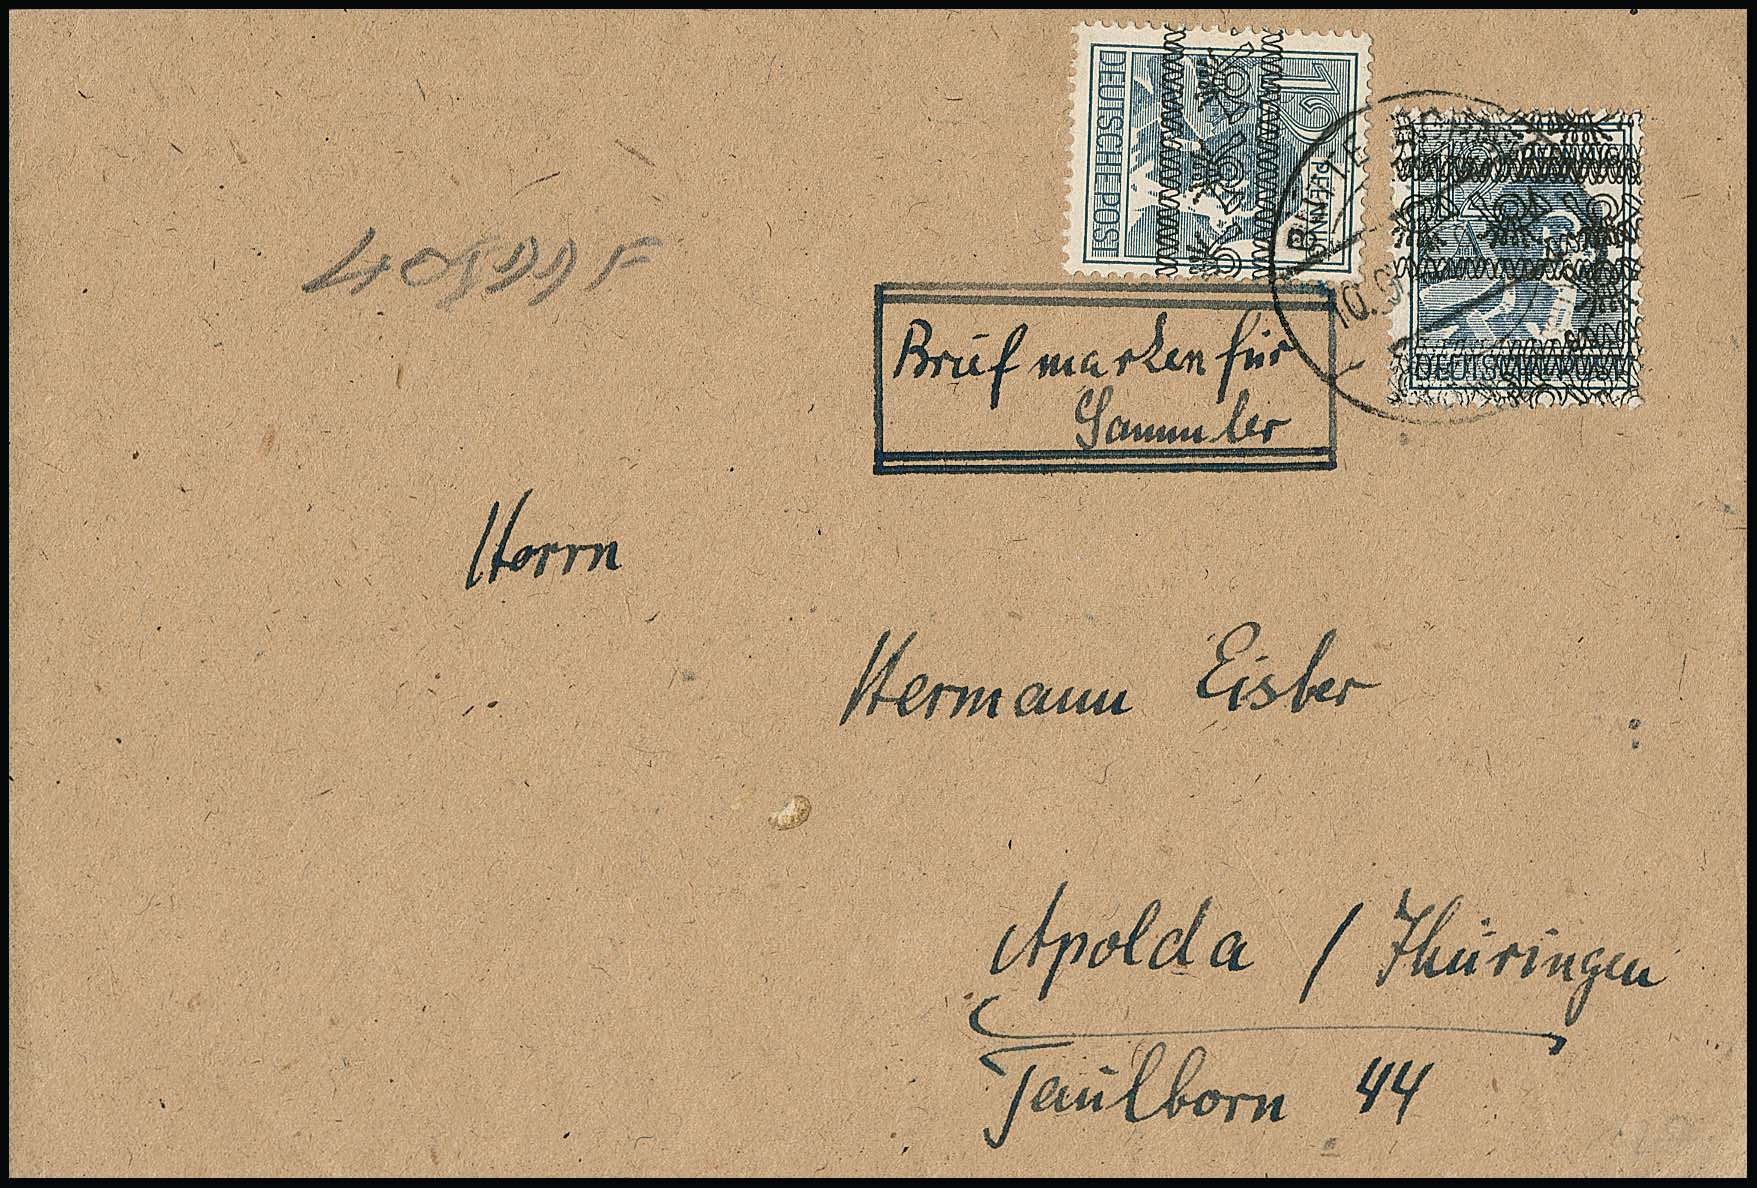 12
PFENNIG
DEUTSCHE POST
12
PFENNIG
DEUTSCHE POST
Briefmarken für
Sammler
Herrn
Hermann Eisber
Apolda / Thüringen
44